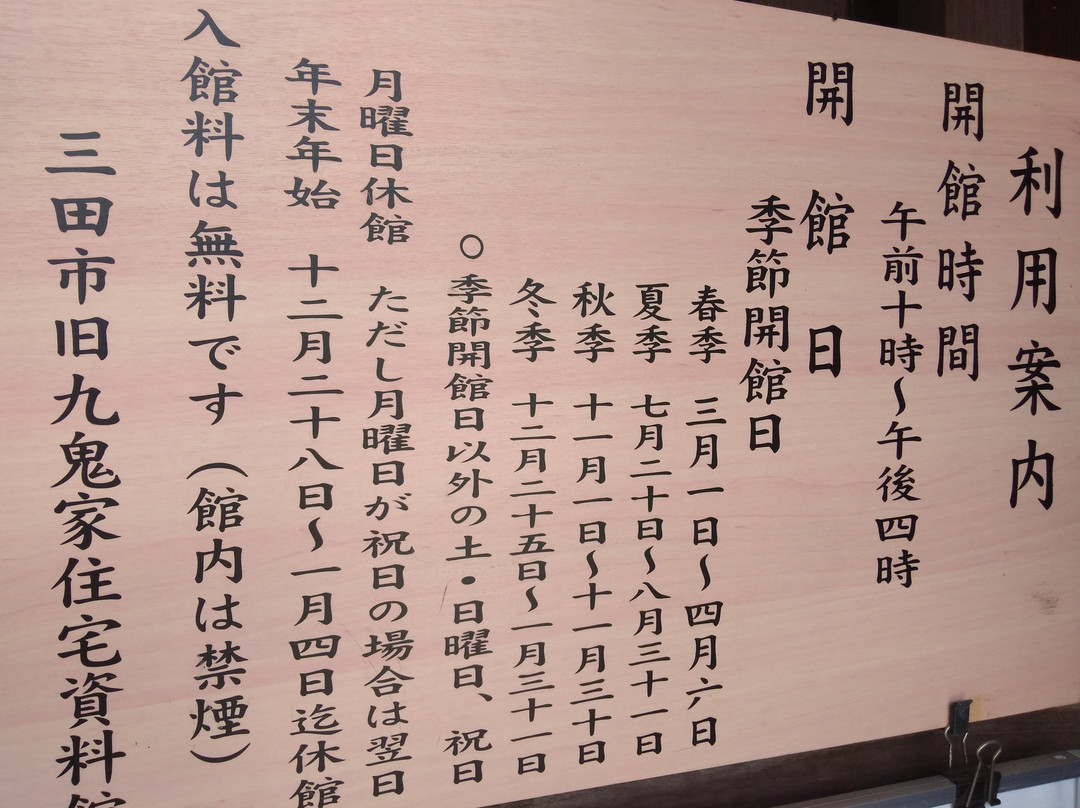 利用案内
開館時間
午前十時～午後四時
開館日
季節開館日
春季 三月一日～四月六日
夏季 七月二十日～八月三十一日
秋季 十一月一日～十一月三十日
冬季 十二月二十五日～一月三十一日
○季節開館日以外の土・日曜日、祝日
月曜日休館 ただし月曜日が祝日の場合は翌日
年末年始 十二月二十八日～一月四日迄休館
入館料は無料です（館内は禁煙）
三田市旧九鬼家住宅資料館